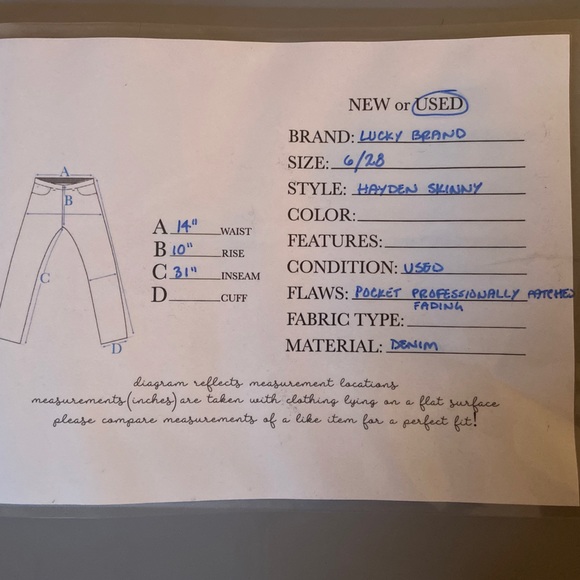 NEW or USED
BRAND: LUCKY BRAND
SIZE: 6/28
STYLE: HAYDEN SKINNY
COLOR:
FEATURES:
CONDITION: USED
FLAWS: POCKET PROFESSIONALLY PATCHED
FADING
FABRIC TYPE:
MATERIAL: DENIM
A
B
C
D
A 14" WAIST
B 10" RISE
C 31" INSEAM
D CUFF
diagram reflects measurement locations
measurements(inches) are taken with clothing lying on a flat surface
please compare measurements of a like item for a perfect fit!